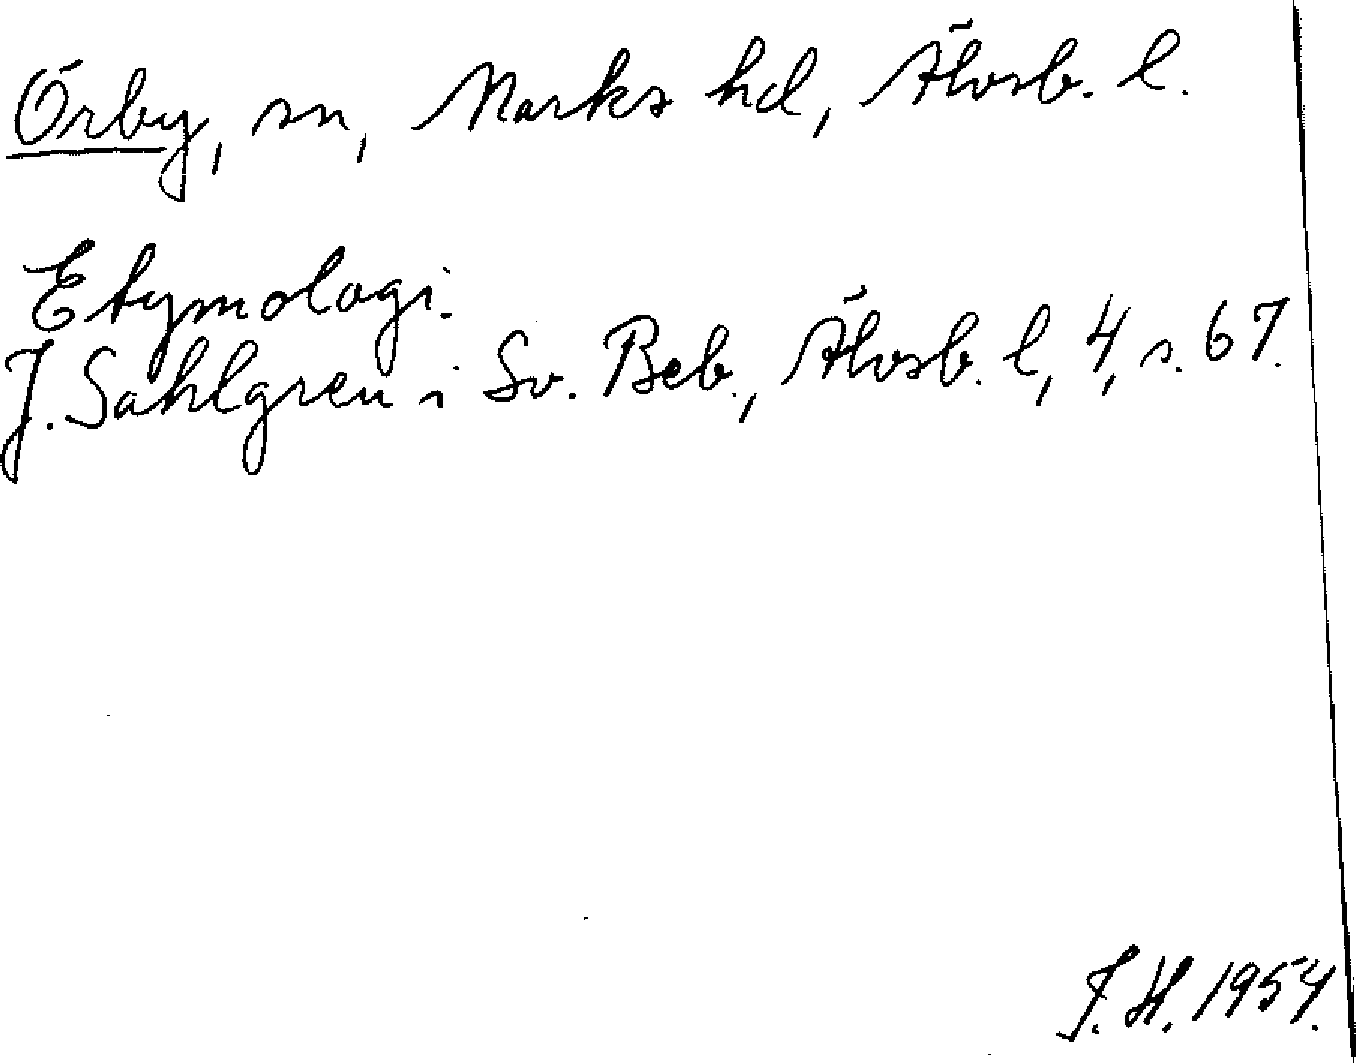 Örby, sn, Marks hd, Älvsb. l.
Etymologi.
J. Sahlgren i Sv. Beb., Älvsb. l, 4, s. 67.
J. H. 1954.